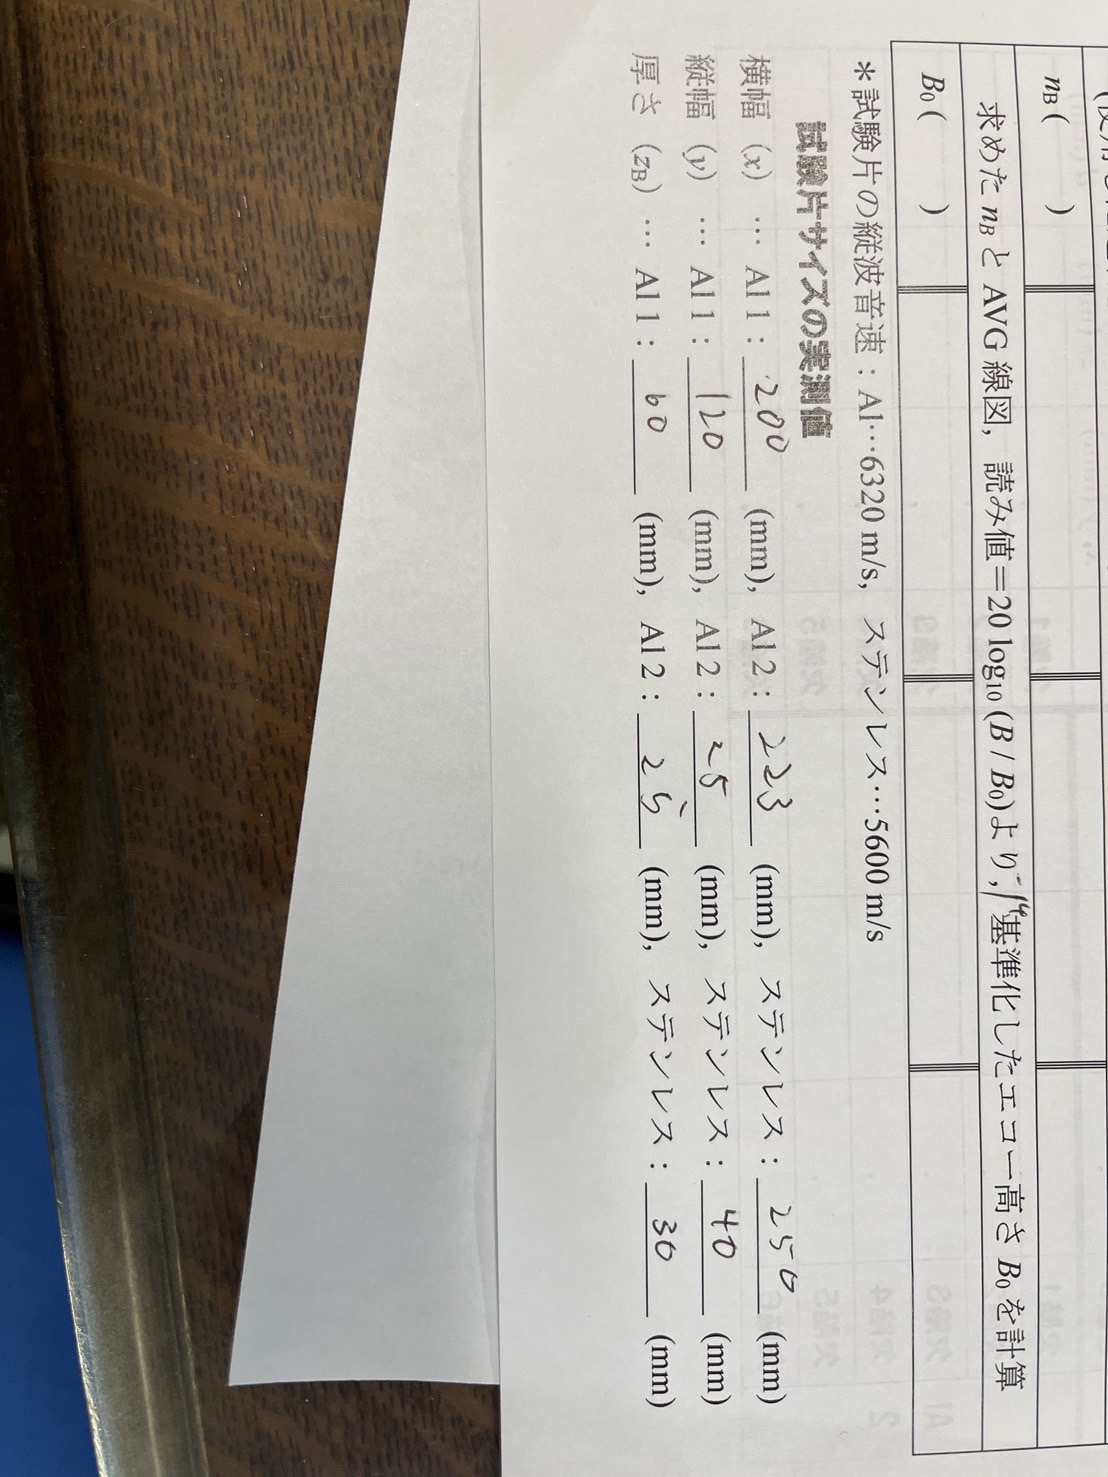 nB (　　　)
求めた nB と AVG 線図, 読み値＝20 log10 (B / B0)より, 基準化したエコー高さ B0 を計算
B0 (　　　)
＊試験片の縦波音速：Al…6320 m/s, ステンレス…5600 m/s
試験片サイズの実測値
横幅 (x) … Al 1：200 (mm), Al 2：223 (mm), ステンレス：250 (mm)
縦幅 (y) … Al 1：120 (mm), Al 2：25 (mm), ステンレス：40 (mm)
厚さ (zB) … Al 1：60 (mm), Al 2：25 (mm), ステンレス：30 (mm)